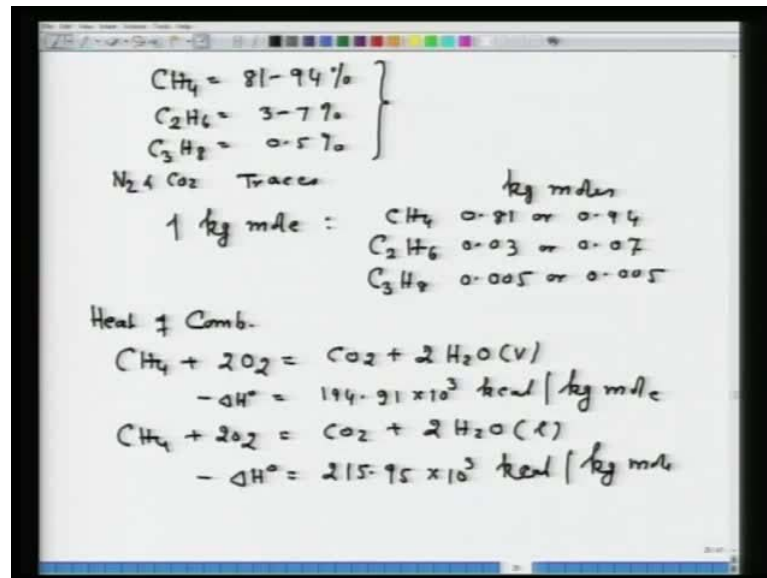 CH4 = 81-94%
C2H6 = 3-7%
C3H8 = 0.5%
N2 & CO2 Traces
kg moles
1 kg mole : CH4 0.81 or 0.94
C2H6 0.03 or 0.07
C3H8 0.005 or 0.005
Heat of Comb.
CH4 + 2O2 = CO2 + 2H2O(V)
-ΔH° = 194.91 x 10³ kcal/kg mole
CH4 + 2O2 = CO2 + 2H2O(l)
-ΔH° = 215.95 x 10³ kcal/kg mole